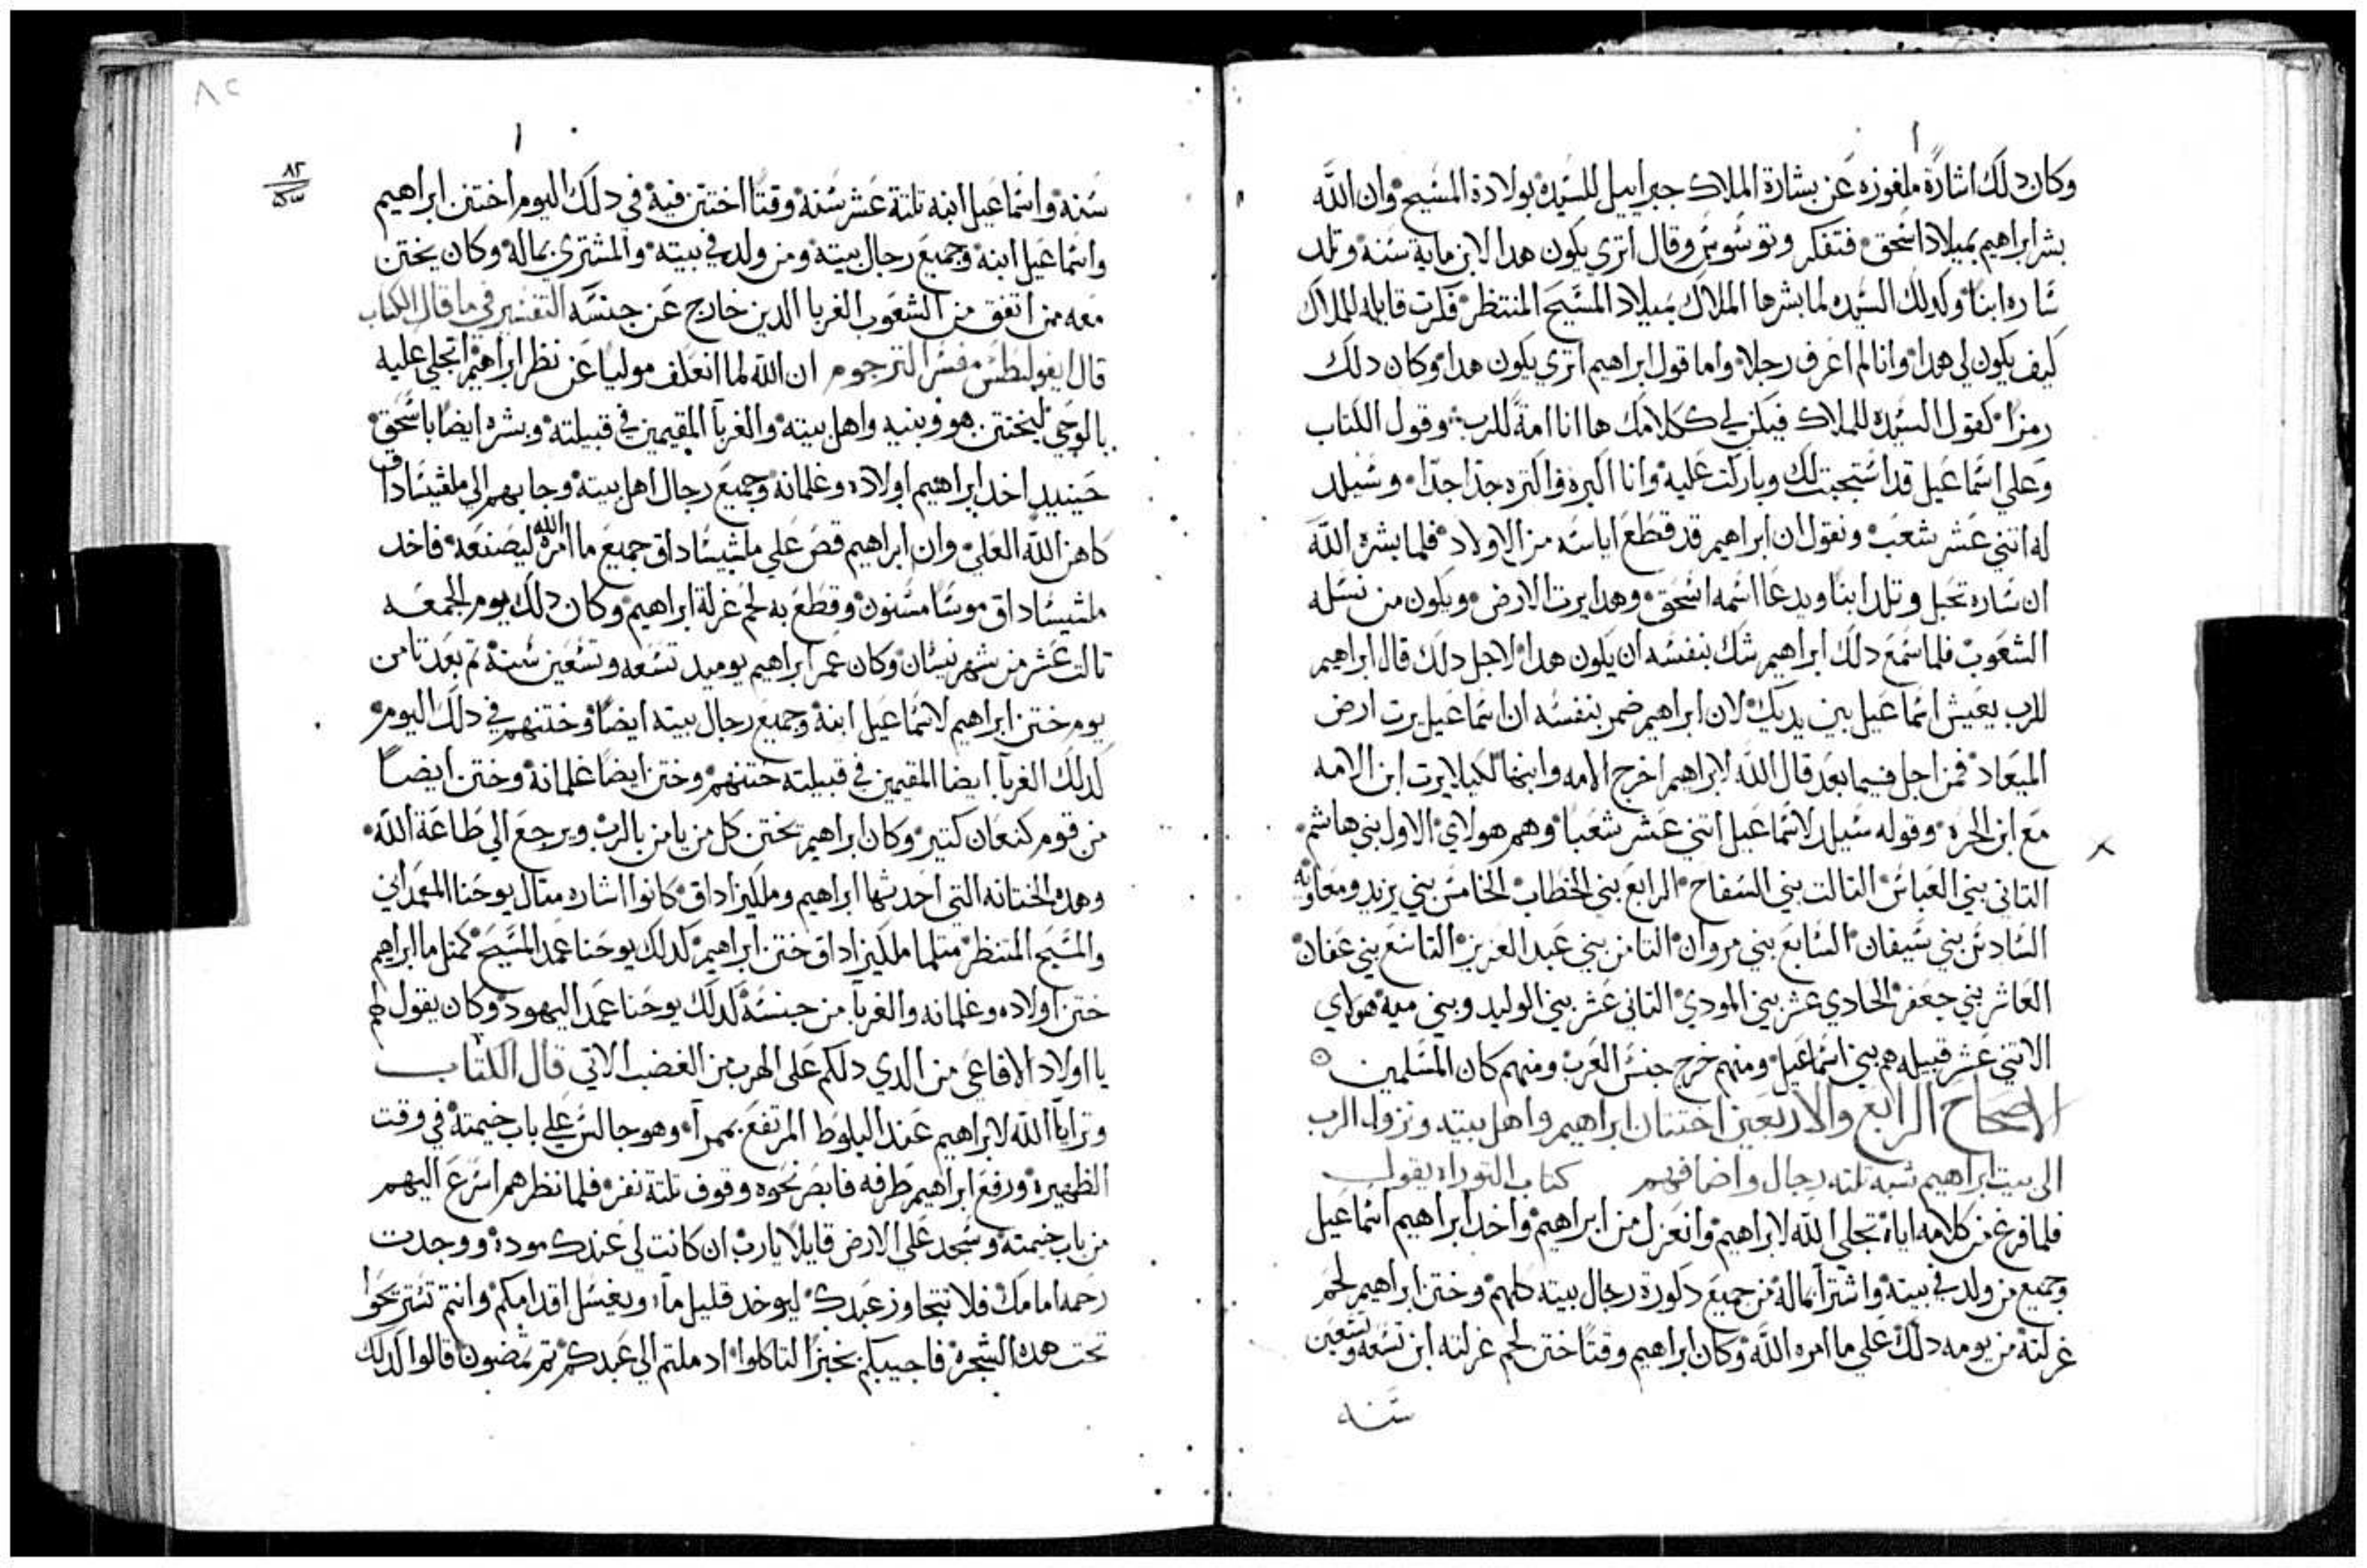 وكان دلك اشارة ملغوزه عن بشارة الملاك جبراييل للسيده بولادة المسيح وان الله
بشر ابراهيم بميلاد اسحق فتفكر وتوسوس وقال اتري يكون هدا لابن ماية سنة وتلد
ساره ابنا وكدلك السيده لما بشرها الملاك بميلاد المسيح المنتظر فكرت قايله للملاك
كيف يكون لي هدا وانا لم اعرف رجلا واما قول ابراهيم اتري يكون هدا وكان دلك
رمزا كقول السيده للملاك فيكن لي ككلامك ها انا امة للرب وقول الكتاب
وعلي اسماعيل قد استجبت لك وباركت عليه وانا اكبره واكتره جدا جدا وسيلد
له اتني عشر شعب ونقول ان ابراهيم قد قطع اياسه من الاولاد فلما بشره الله
ان ساره تحبل وتلد ابنا ويدعا اسمه اسحق وهدا يرت الارض ويكون من نسله
الشعوب فلما سمع دلك ابراهيم شك بنفسه ان يكون هدا لاجل دلك قال ابراهيم
للرب يعيش اسماعيل بين يديك لان ابراهيم ضمر بنفسه ان اسماعيل يرت ارض
الميعاد فمن اجل فيما بعد قال الله لابراهيم اخرج الامه وابنها لكيلا يرت ابن الامه
مع ابن الحره وقوله سيلد لاسماعيل اتني عشر شعبا وهم هولاي الاول بني هاشم
التاني بني العباس التالت بني السفاح الرابع بني الخطاب الخامس بني يزيد ومعاويه
السادس بني سيفان السابع بني مروان التامن بني عبد العزيز التاسع بني عفان
العاشر بني جعفر الحادي عشر بني المودي التاني عشر بني الوليد وبني ميه هولاي
الاتني عشر قبيله هم بني اسماعيل ومنهم خرج جنس العرب ومنهم كان المسلمين
الاصحاح الرابع والاربعين اختتان ابراهيم واهل بيته ونزول الرب
الى بيت ابراهيم شبه تلته رجال واضافهم كتاب التوراه يقول
فلما فرغ من كلامه اياه تجلي الله لابراهيم وانعزل من ابراهيم واخد ابراهيم اسماعيل
وجميع من ولد في بيته واشتراه بماله من جميع دكورة رجال بيته كلهم وختن ابراهيم لحم
غرلته من يومه دلك علي ما امره الله وكان ابراهيم وقتا ختن لحم غرلته ابن تسعه وتسعين
سنه
٨٢
سنة واسماعيل ابنه تلتة عشر سنة وقتا اختتن فيه في دلك اليوم اختتن ابراهيم
واسماعيل ابنه وجميع رجال بيته ومن ولد في بيته والمشتري بماله وكان يختن
معه من اتفق من الشعوب الغربا الدين خارج عن جنسه التفسير في ما قال الكتاب
قال ايفوليطس مفسر الترجوم ان الله لما انعلف موليا عن نظر ابراهيم اتجلي عليه
بالوحي ليختتن هو وبنيه واهل بيته والغربآ المقيمين في قبيلته وبشره ايضا باسحق
حينيد اخد ابراهيم اولاده وغلمانه وجميع رجال اهل بيته وجا بهم الى ملشيساداق
كاهن الله العلي وان ابراهيم قص علي ملشيساداق جميع ما امره الله ليصنعه فاخد
ملشيساداق موسا مسنون وقطع به لحم غرلة ابراهيم وكان دلك يوم الجمعه
تالت عشر من شهر نيسان وكان عمر ابراهيم يوميد تسعه وتسعين سنة تم بعد تامن
يوم ختن ابراهيم لاسماعيل ابنه وجميع رجال بيته ايضا وختنهم في دلك اليوم
كدلك الغربآ ايضا المقيمين في قبيلته ختنهم وختن ايضا غلمانه وختن ايضا
من قوم كنعان كتير وكان ابراهيم يختن كل من يامن بالرب ويرجع الي طاعة الله
وهده الختانه التي احدتها ابراهيم وملكيزاداق كانوا اشاره متال يوحنا المعمداني
والمسيح المنتظر متلما ملكيزاداق ختن ابراهيم كدلك يوحنا عمد المسيح كمتل ما ابراهيم
ختن اولاده وغلمانه والغربآ من جنسه كدلك يوحنا عمد اليهود وكان يقول لهم
يا اولاد الافاعي من الدي دلكم على الهرب من الغضب الاتي قال الكتاب
وترايا الله لابراهيم عند البلوط المرتفع بممرا وهو جالس علي باب خيمته في وقت
الظهيره ورفع ابراهيم طرفه فابصر نحوه وقوف تلتة نفر فلما نظرهم اسرع اليهم
من باب خيمته وسجد علي الارض قايلا يارب ان كانت لي عندك موده ووجدت
رحمه امامك فلا تتجاوز عبدك ليوخد قليل مآء ويغسل اقدامكم وانتم تستريحوا
تحت هده الشجرة فاجيبكم بخبز التاكلوا اد ملتم الي عبدكم تم تمضون قالوا كدلك